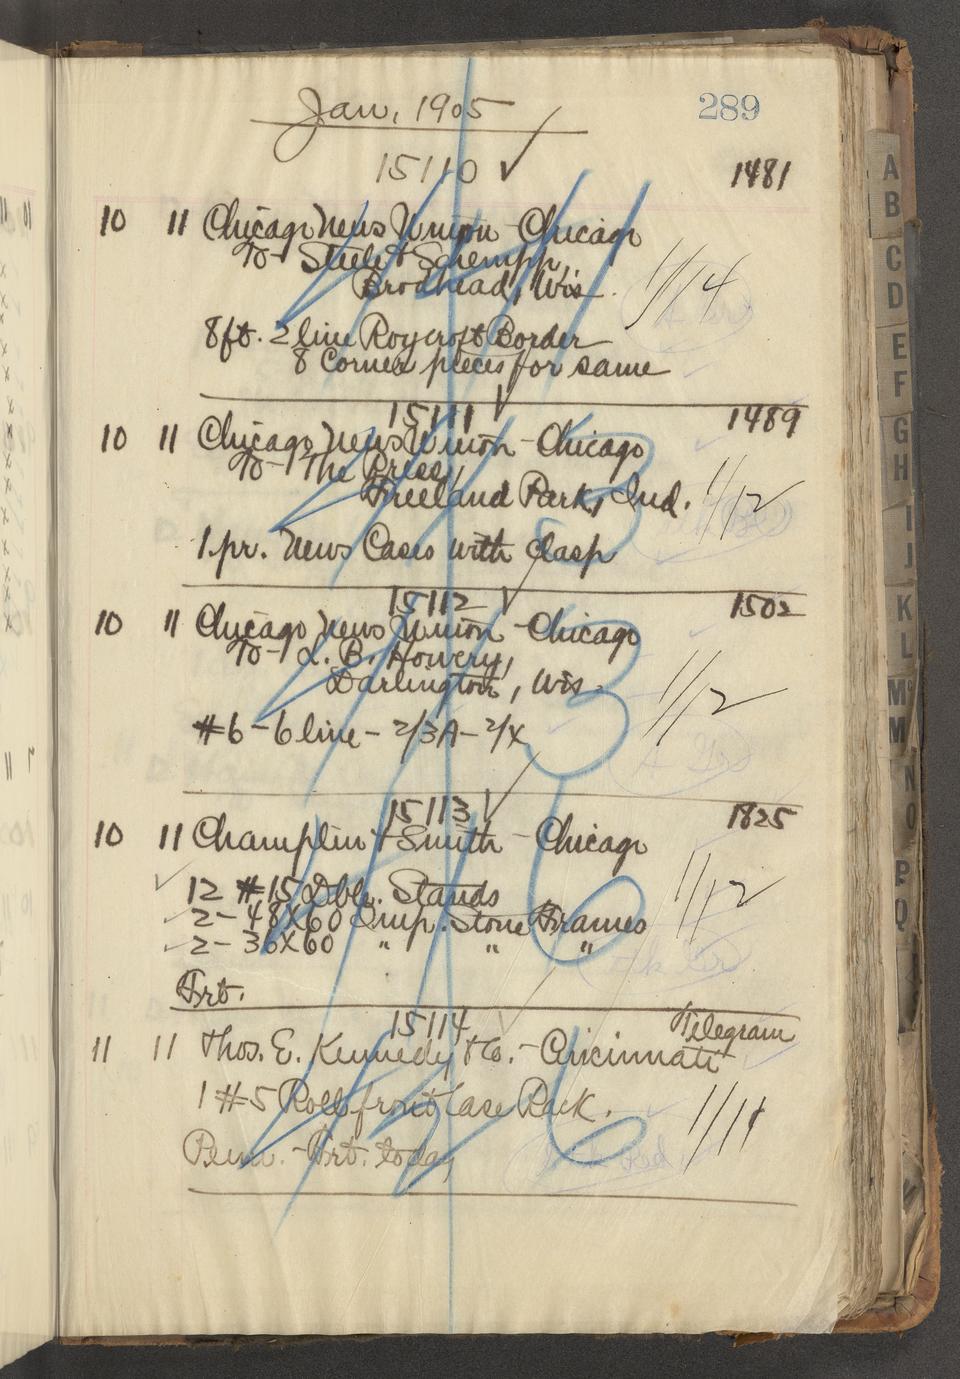 Jan, 1905
289
15110 ✓
1481
10 11 Chicago News Union - Chicago
To - Steele & Schempp,
Brodhead, Wis.
1/14
8ft. 2 line Roycroft Border
8 Corner pieces for same
15111 ✓
1489
10 11 Chicago News Union - Chicago
To - The Press,
Freeland Park, Ind.
1/12
1 pr. News Cases with clasp
15112 ✓
1502
10 11 Chicago News Union - Chicago
To - L. B. Howery,
Darlington, Wis.
1/12
#6 - 6 line - 2/3A - 2/X
15113 ✓
1825
10 11 Champlin & Smith - Chicago
12 #15 Dble. Stands
1/12
2 - 48X60 Imp. Stone Frames
2 - 36X60 " " "
Frt.
15114
Telegram
11 11 Thos. E. Kennedy & Co. - Cincinnati
1 #5 Roll front Case Rack.
1/11
Frt. today
A
B
C
D
E
F
G
H
I
J
K
L
M
M
N
O
P
Q